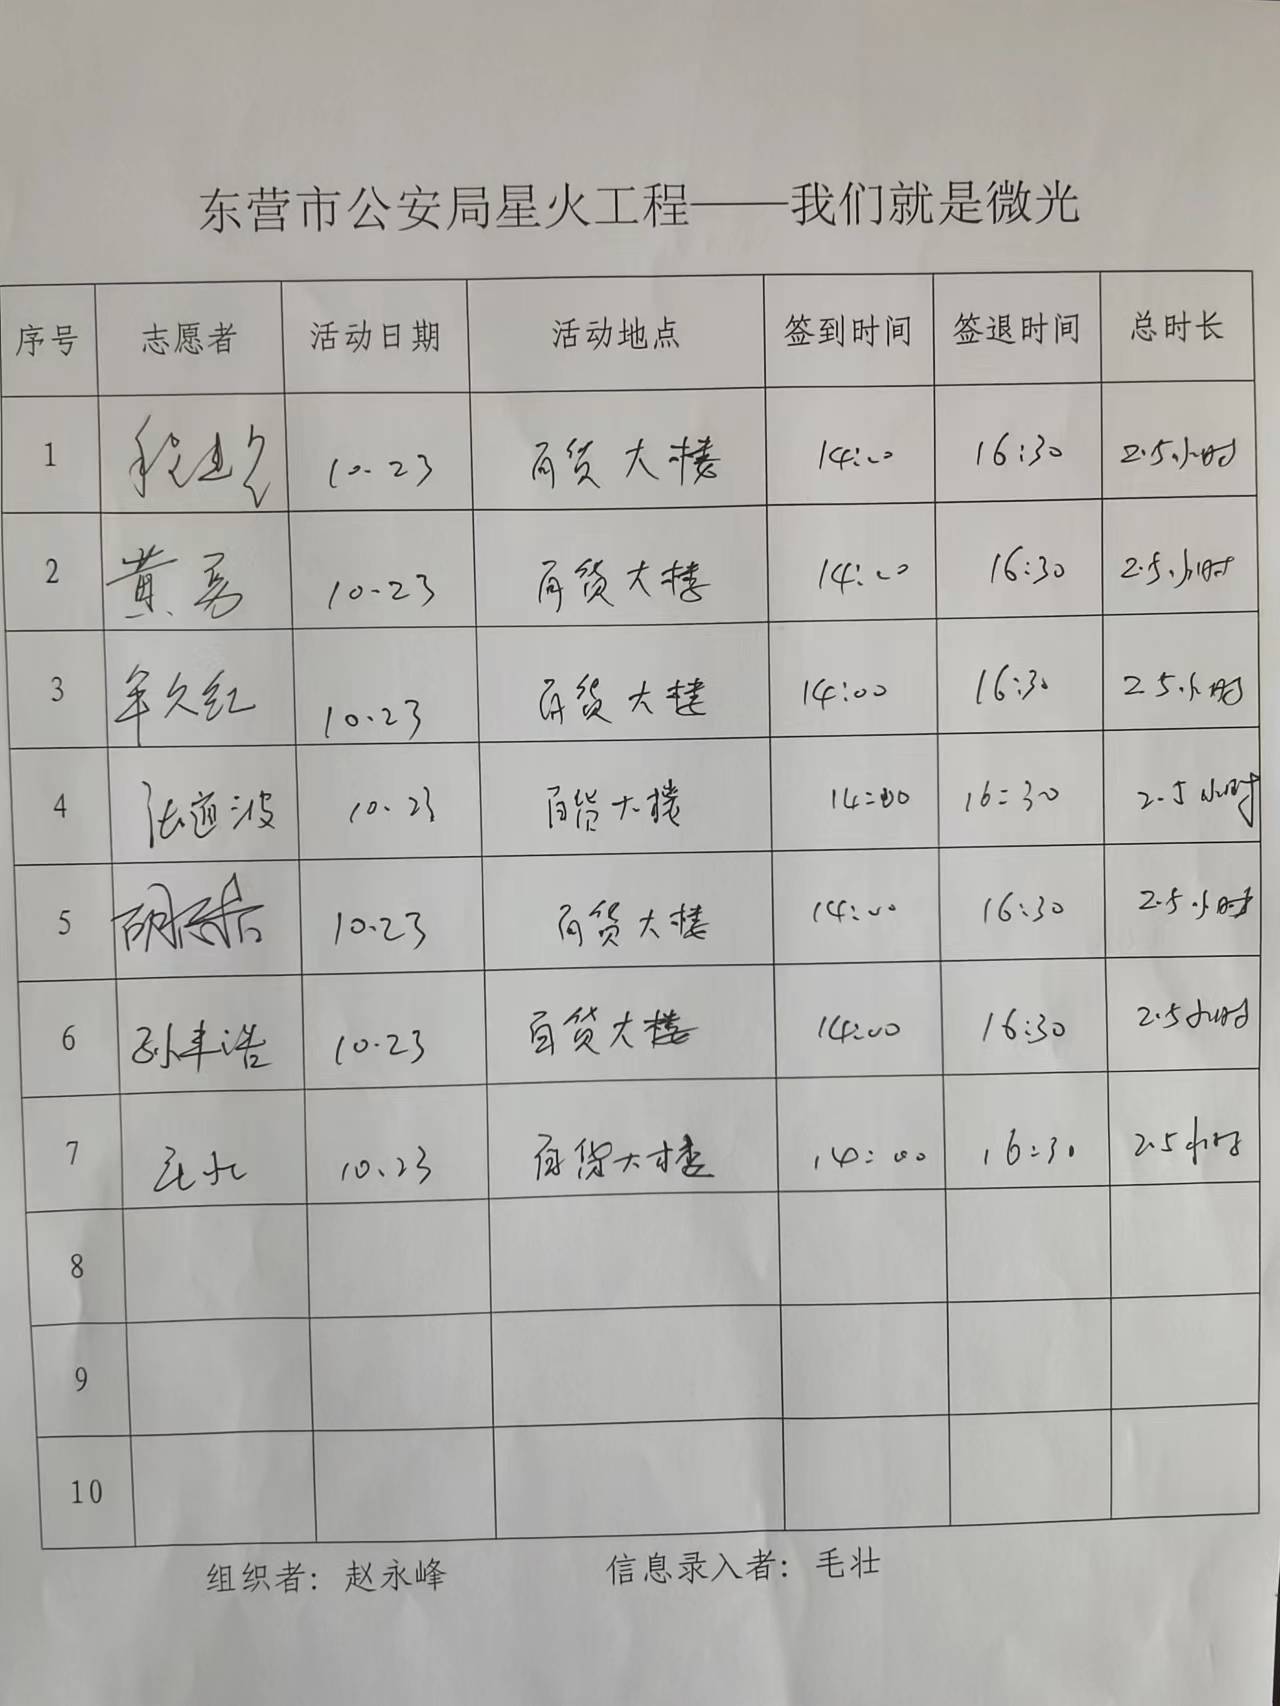 东营市公安局星火工程——我们就是微光
序号 志愿者 活动日期 活动地点 签到时间 签退时间 总时长
1 程 10.23 百货大楼 14:00 16:30 2.5小时
2 黄勇 10.23 百货大楼 14:00 16:30 2.5小时
3 牟久红 10.23 百货大楼 14:00 16:30 2.5小时
4 张道波 10.23 百货大楼 14:00 16:30 2.5小时
5 胡 10.23 百货大楼 14:00 16:30 2.5小时
6 孙丰浩 10.23 百货大楼 14:00 16:30 2.5小时
7 10.23 百货大楼 14:00 16:30 2.5小时
8
9
10
组织者：赵永峰 信息录入者：毛壮